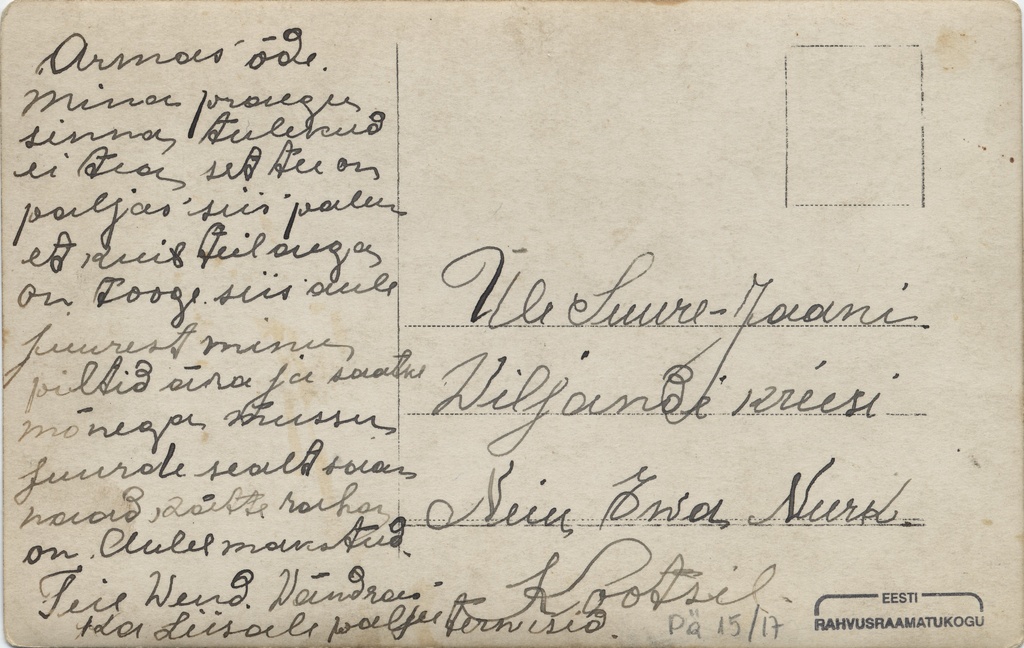 Armas õde.
Mina praegu
sinna tulekud
ei tea, set tee on
paljas siis palun
et kuis teil aega
on Tooge siis aule
juurest minu
piltid ära ja saatke
mõnega mussu
juurde sealt saan
naad kätte raha
on. Aulel makstud.
Teie Wend. Wändras
Ka Liisale palju terwisid.
Üle Suure-Jaani
Wiljandi kreisi
Neiu Ewa Nurk.
Kootsil.
Pä 15/17
EESTI
RAHVUSRAAMATUKOGU